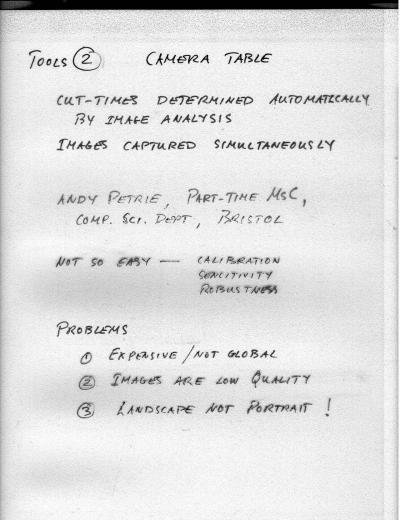 TOOLS ② CAMERA TABLE
CUT-TIMES DETERMINED AUTOMATICALLY
BY IMAGE ANALYSIS
IMAGES CAPTURED SIMULTANEOUSLY
ANDY PETRIE, PART-TIME MSC,
COMP. SCI. DEPT, BRISTOL
NOT SO EASY — CALIBRATION
SENCITIVITY
ROBUSTNESS
PROBLEMS
① EXPENSIVE / NOT GLOBAL
② IMAGES ARE LOW QUALITY
③ LANDSCAPE NOT PORTRAIT !